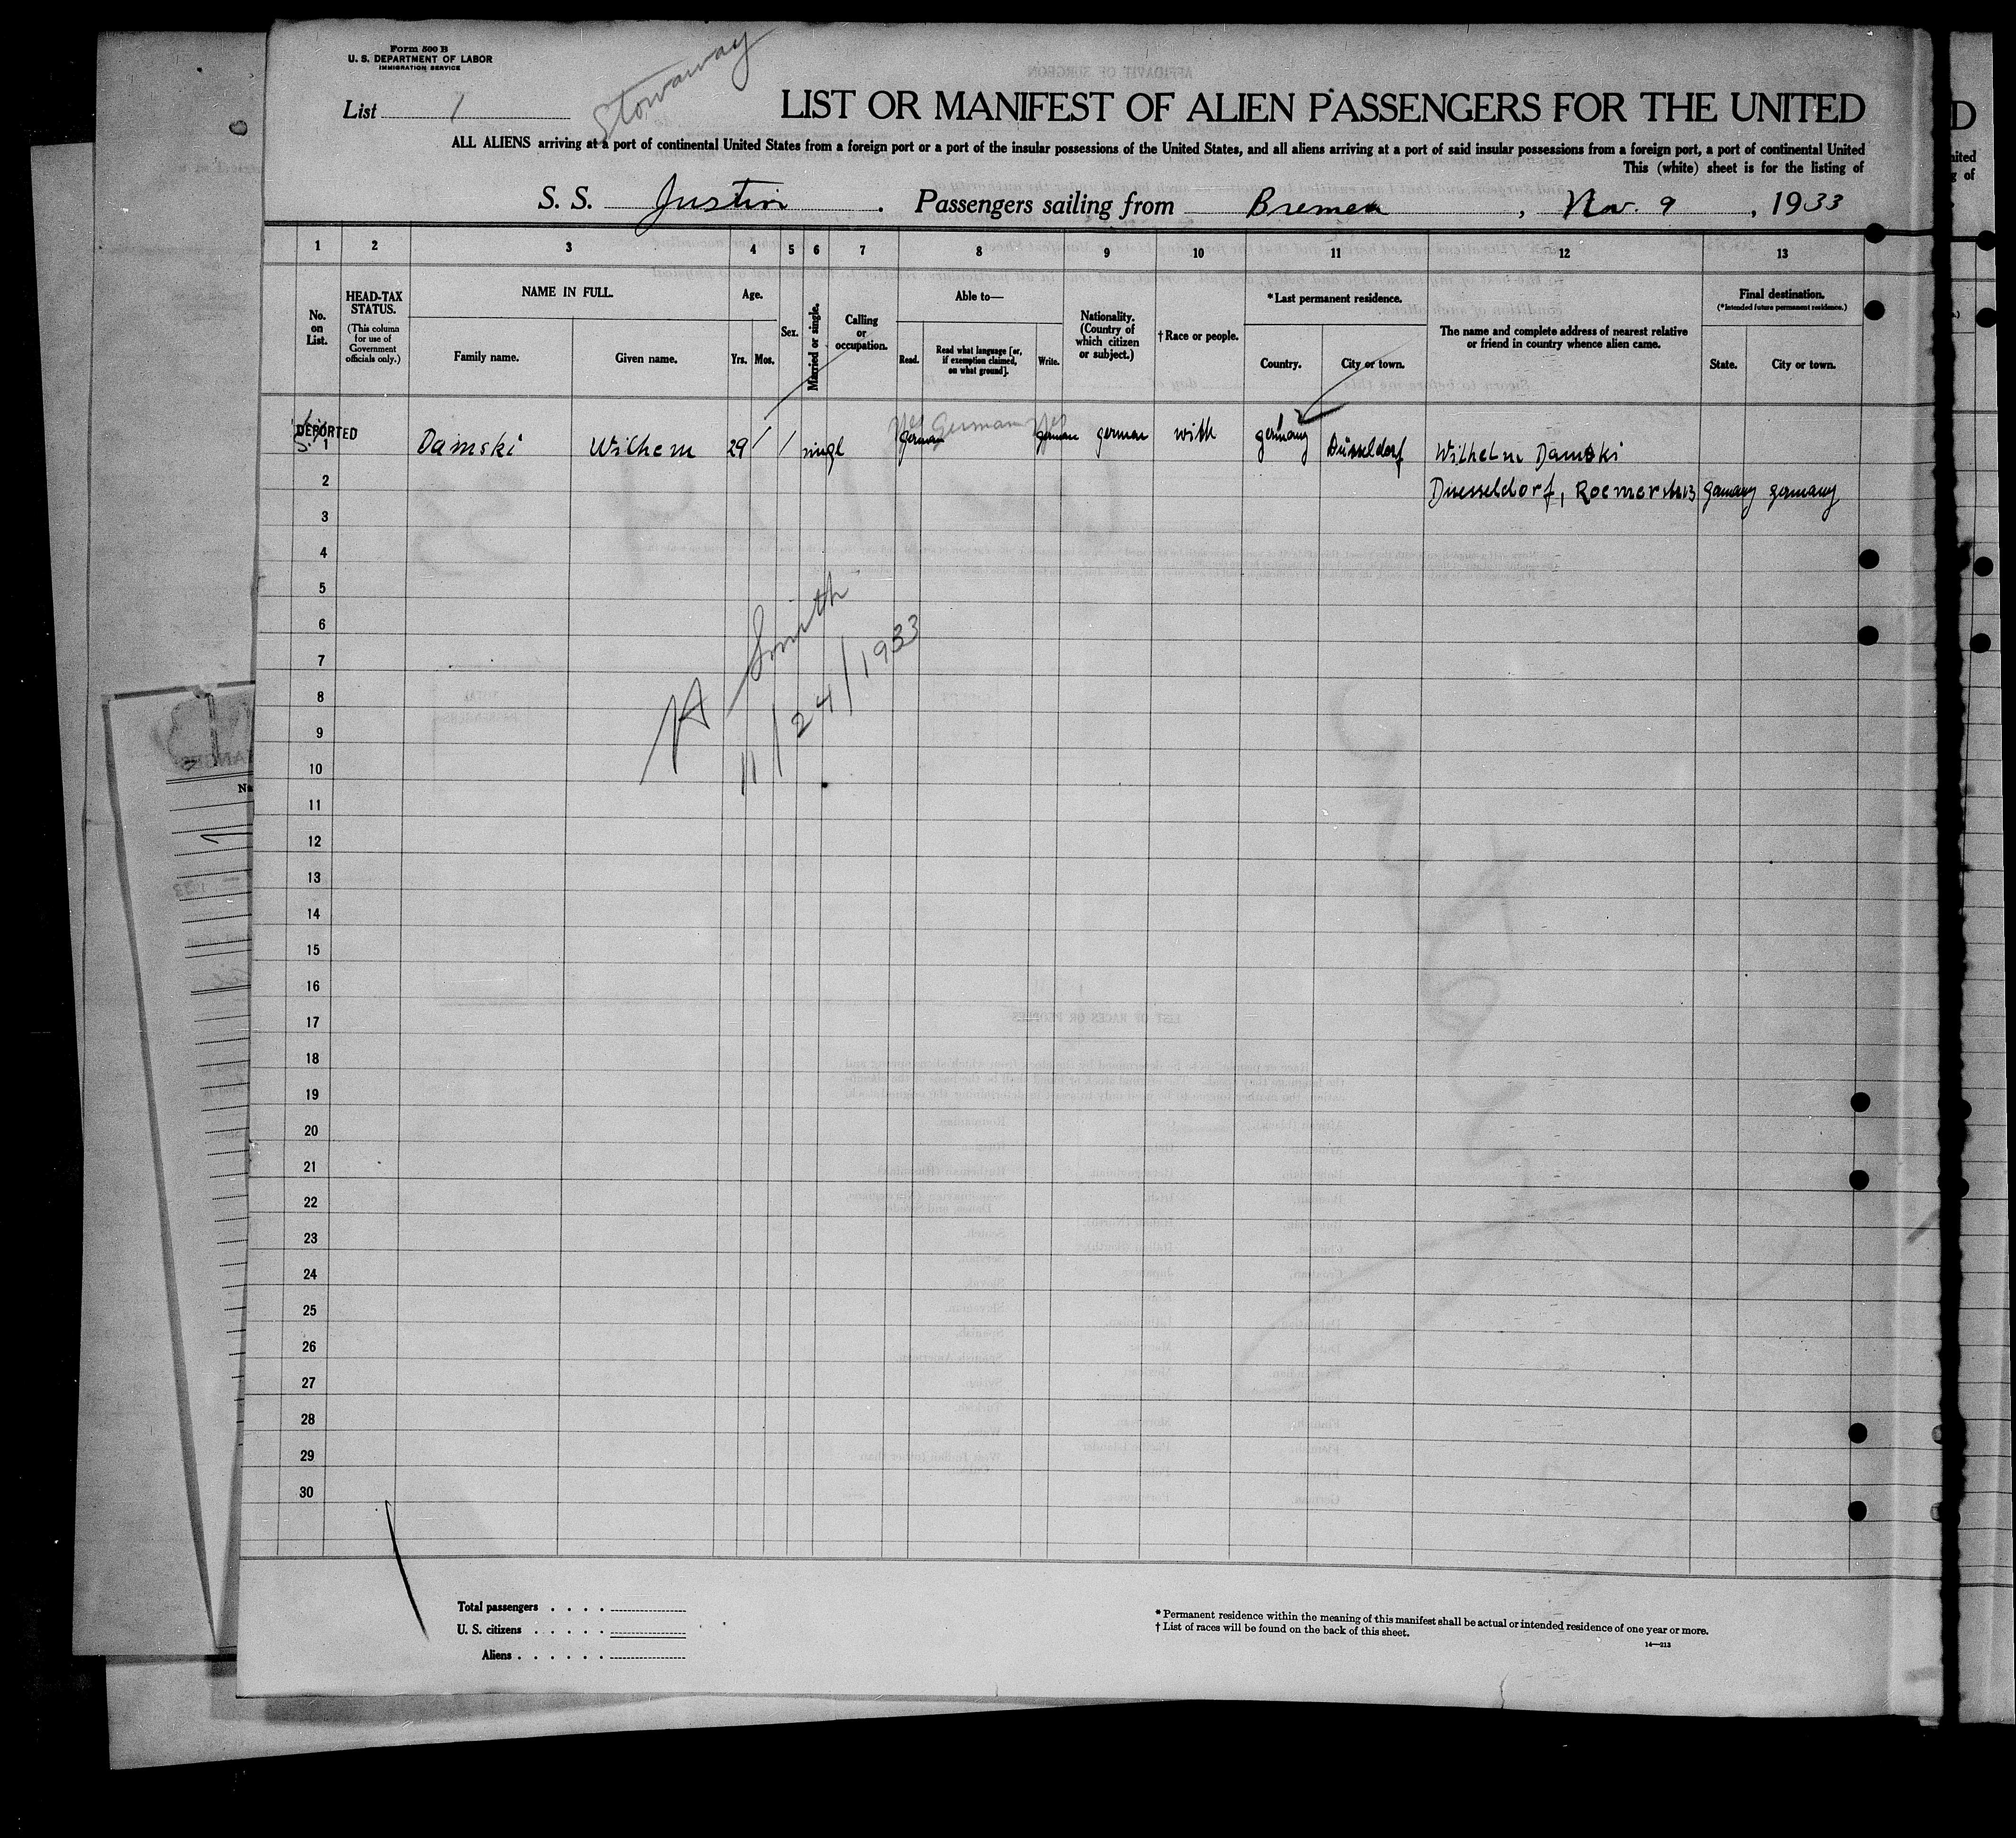 Form 500 B
U. S. DEPARTMENT OF LABOR
IMMIGRATION SERVICE
Stowaway
List 1
LIST OR MANIFEST OF ALIEN PASSENGERS FOR THE UNITED
ALL ALIENS arriving at a port of continental United States from a foreign port or a port of the insular possessions of the United States, and all aliens arriving at a port of said insular possessions from a foreign port, a port of continental United
This (white) sheet is for the listing of
S. S. Justin . Passengers sailing from Bremen , Nov. 9 , 1933
1 2 3 4 5 6 7 8 9 10 11 12 13
No. on List.
HEAD-TAX STATUS.
(This column for use of Government officials only.)
NAME IN FULL.
Family name.
Given name.
Age.
Yrs. Mos.
Sex.
Married or single.
Calling or occupation.
Able to—
Read.
Read what language [or, if exemption claimed, on what ground].
Write.
Nationality. (Country of which citizen or subject.)
† Race or people.
*Last permanent residence.
Country.
City or town.
The name and complete address of nearest relative or friend in country whence alien came.
Final destination.
(*Intended future permanent residence.)
State.
City or town.
yes German yes
DEPORTED
1 Damski Wilhem 29 singl german german german with germany Düsseldorf Wilhelm Damski
2 Duesseldorf, Roemerstr 13 Germany germany
3
4
5
6
7
8
9
10
11
12
13
14
15
16
17
18
19
20
21
22
23
24
25
26
27
28
29
30
Smith
11/24/1933
Total passengers . . . .
U. S. citizens . . . . .
Aliens . . . . . .
* Permanent residence within the meaning of this manifest shall be actual or intended residence of one year or more.
† List of races will be found on the back of this sheet.
14—213